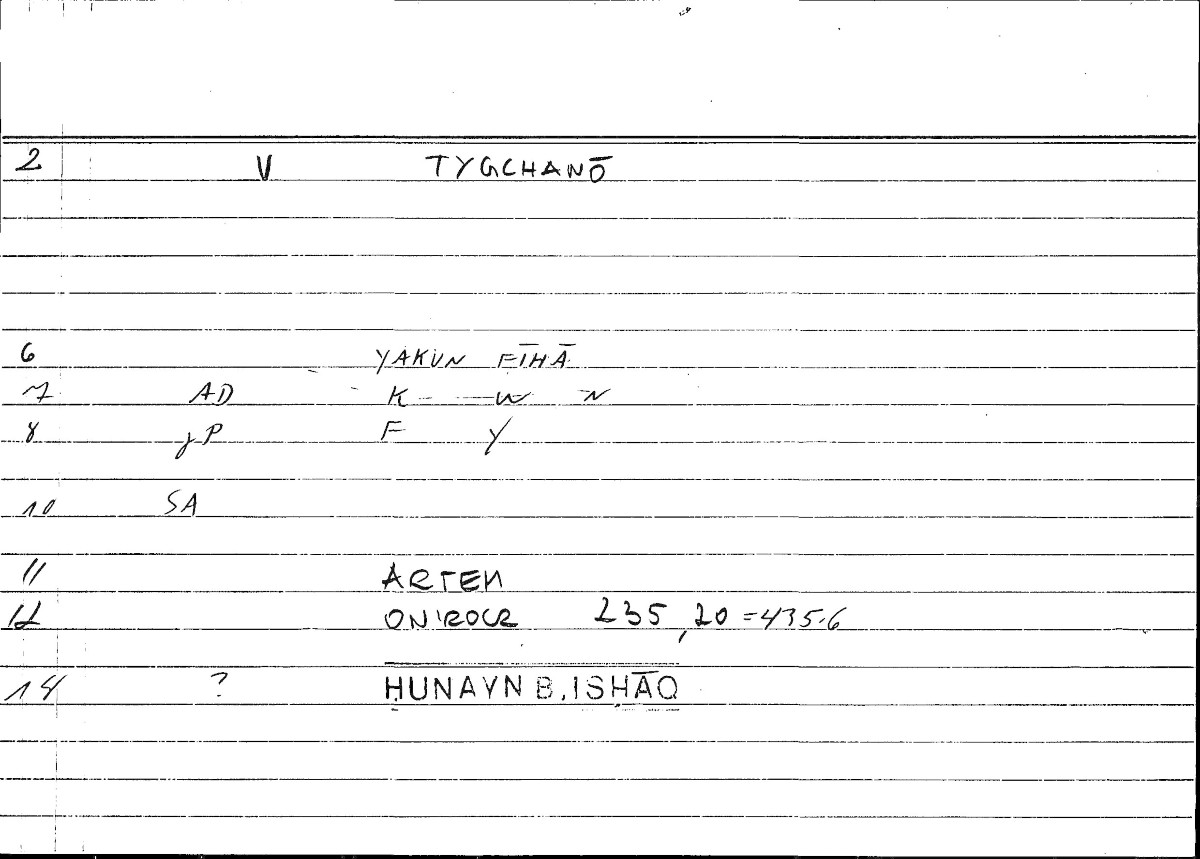 2 V TYGCHANŌ
6 YAKUN FĪHĀ
7 AD K W N
8 jP F Y
10 SA
11 ARTEM
12 ONIROCR 235,20 = 435.6
14 ? ḤUNAYN B. ISḤĀQ